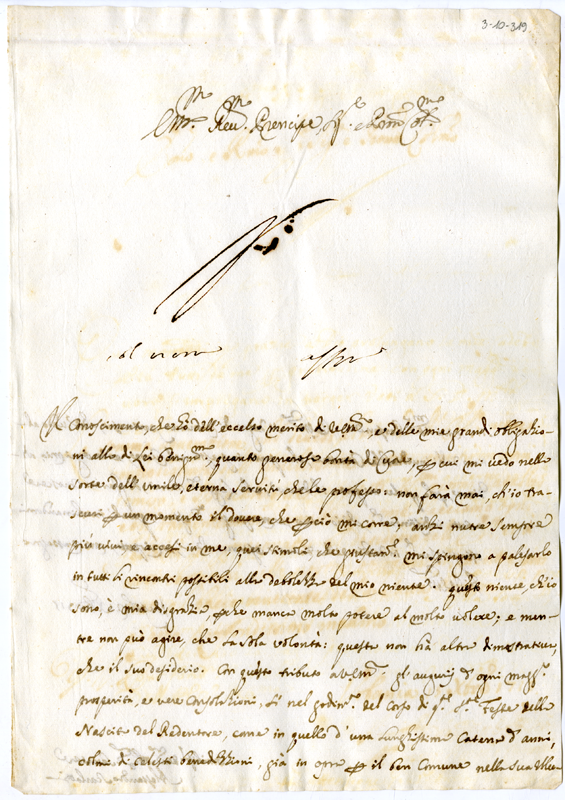 3-10-319
Em.mo Rev.mo Prencipe, Sig.re e Pron
Conoscimento, che hò dell'eccelso merito di V.Em.za, e delle mie grandi obligatio-
ni alle di Lei benig.me, quanto generose bontà di cuore, per cui mi vedo nella
sorte dell'umile, eterna servitù che le professo: non farà mai, ch'io tra-
scuri per un momento il dovere, che perciò mi corre, anzi nutre sempre
più vivi e accesi in me, quei stimoli, che mi spingono a palesarlo
in tutti li rincontri possibili alla debolezza del mio niente. questo niente, ch'io
sono, è mia disgrazia, perche manca molto potere al molto volere; e men-
tre non può agire, che la sola volontà: questa non hà altra dimostrativa,
che il suo desiderio. Con questo tributo a V.Em.za gl'augurij d'ogni magg.r
prosperità, e vere Consolazioni, sì nel del Corso di q.te S.te Feste della
Nascita del Redentore, come in quello d'una lunghissima Catena d'anni,
colmi di celesti benedizioni, già in opra per il ben Comune nella sua